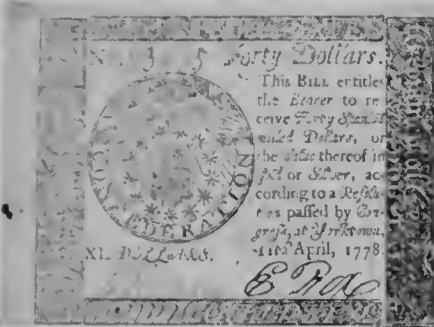 Forty Dollars.
This BILL entitles
the Bearer to re-
ceive Forty Spanish
milled Dollars, or
the value thereof in
Gold or Silver, ac-
cording to a Resolu-
tion passed by Con-
gress, at Yorktown,
11th April, 1778.
CONFEDERATION
XL DOLLARS.